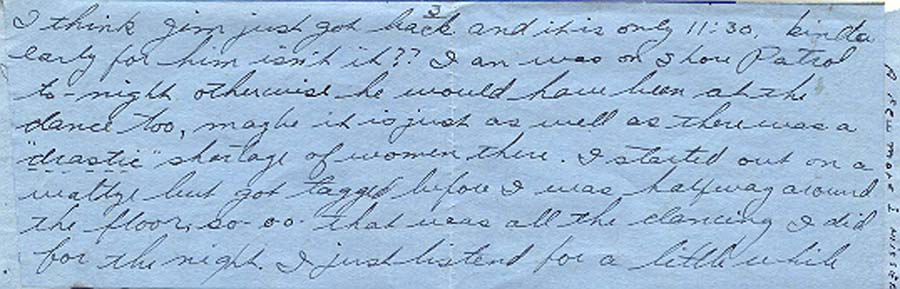 3
I think Jim just got back and it is only 11:30, kinda
early for him isn't it?? Ian was on Shore Patrol
to-night otherwise he would have been at the
dance too, maybe it is just as well as there was a
"drastic" shortage of women there. I started out on a
waltze but got tagged before I was halfway around
the floor, so-oo- that was all the dancing I did
for the night. I just listend for a little while